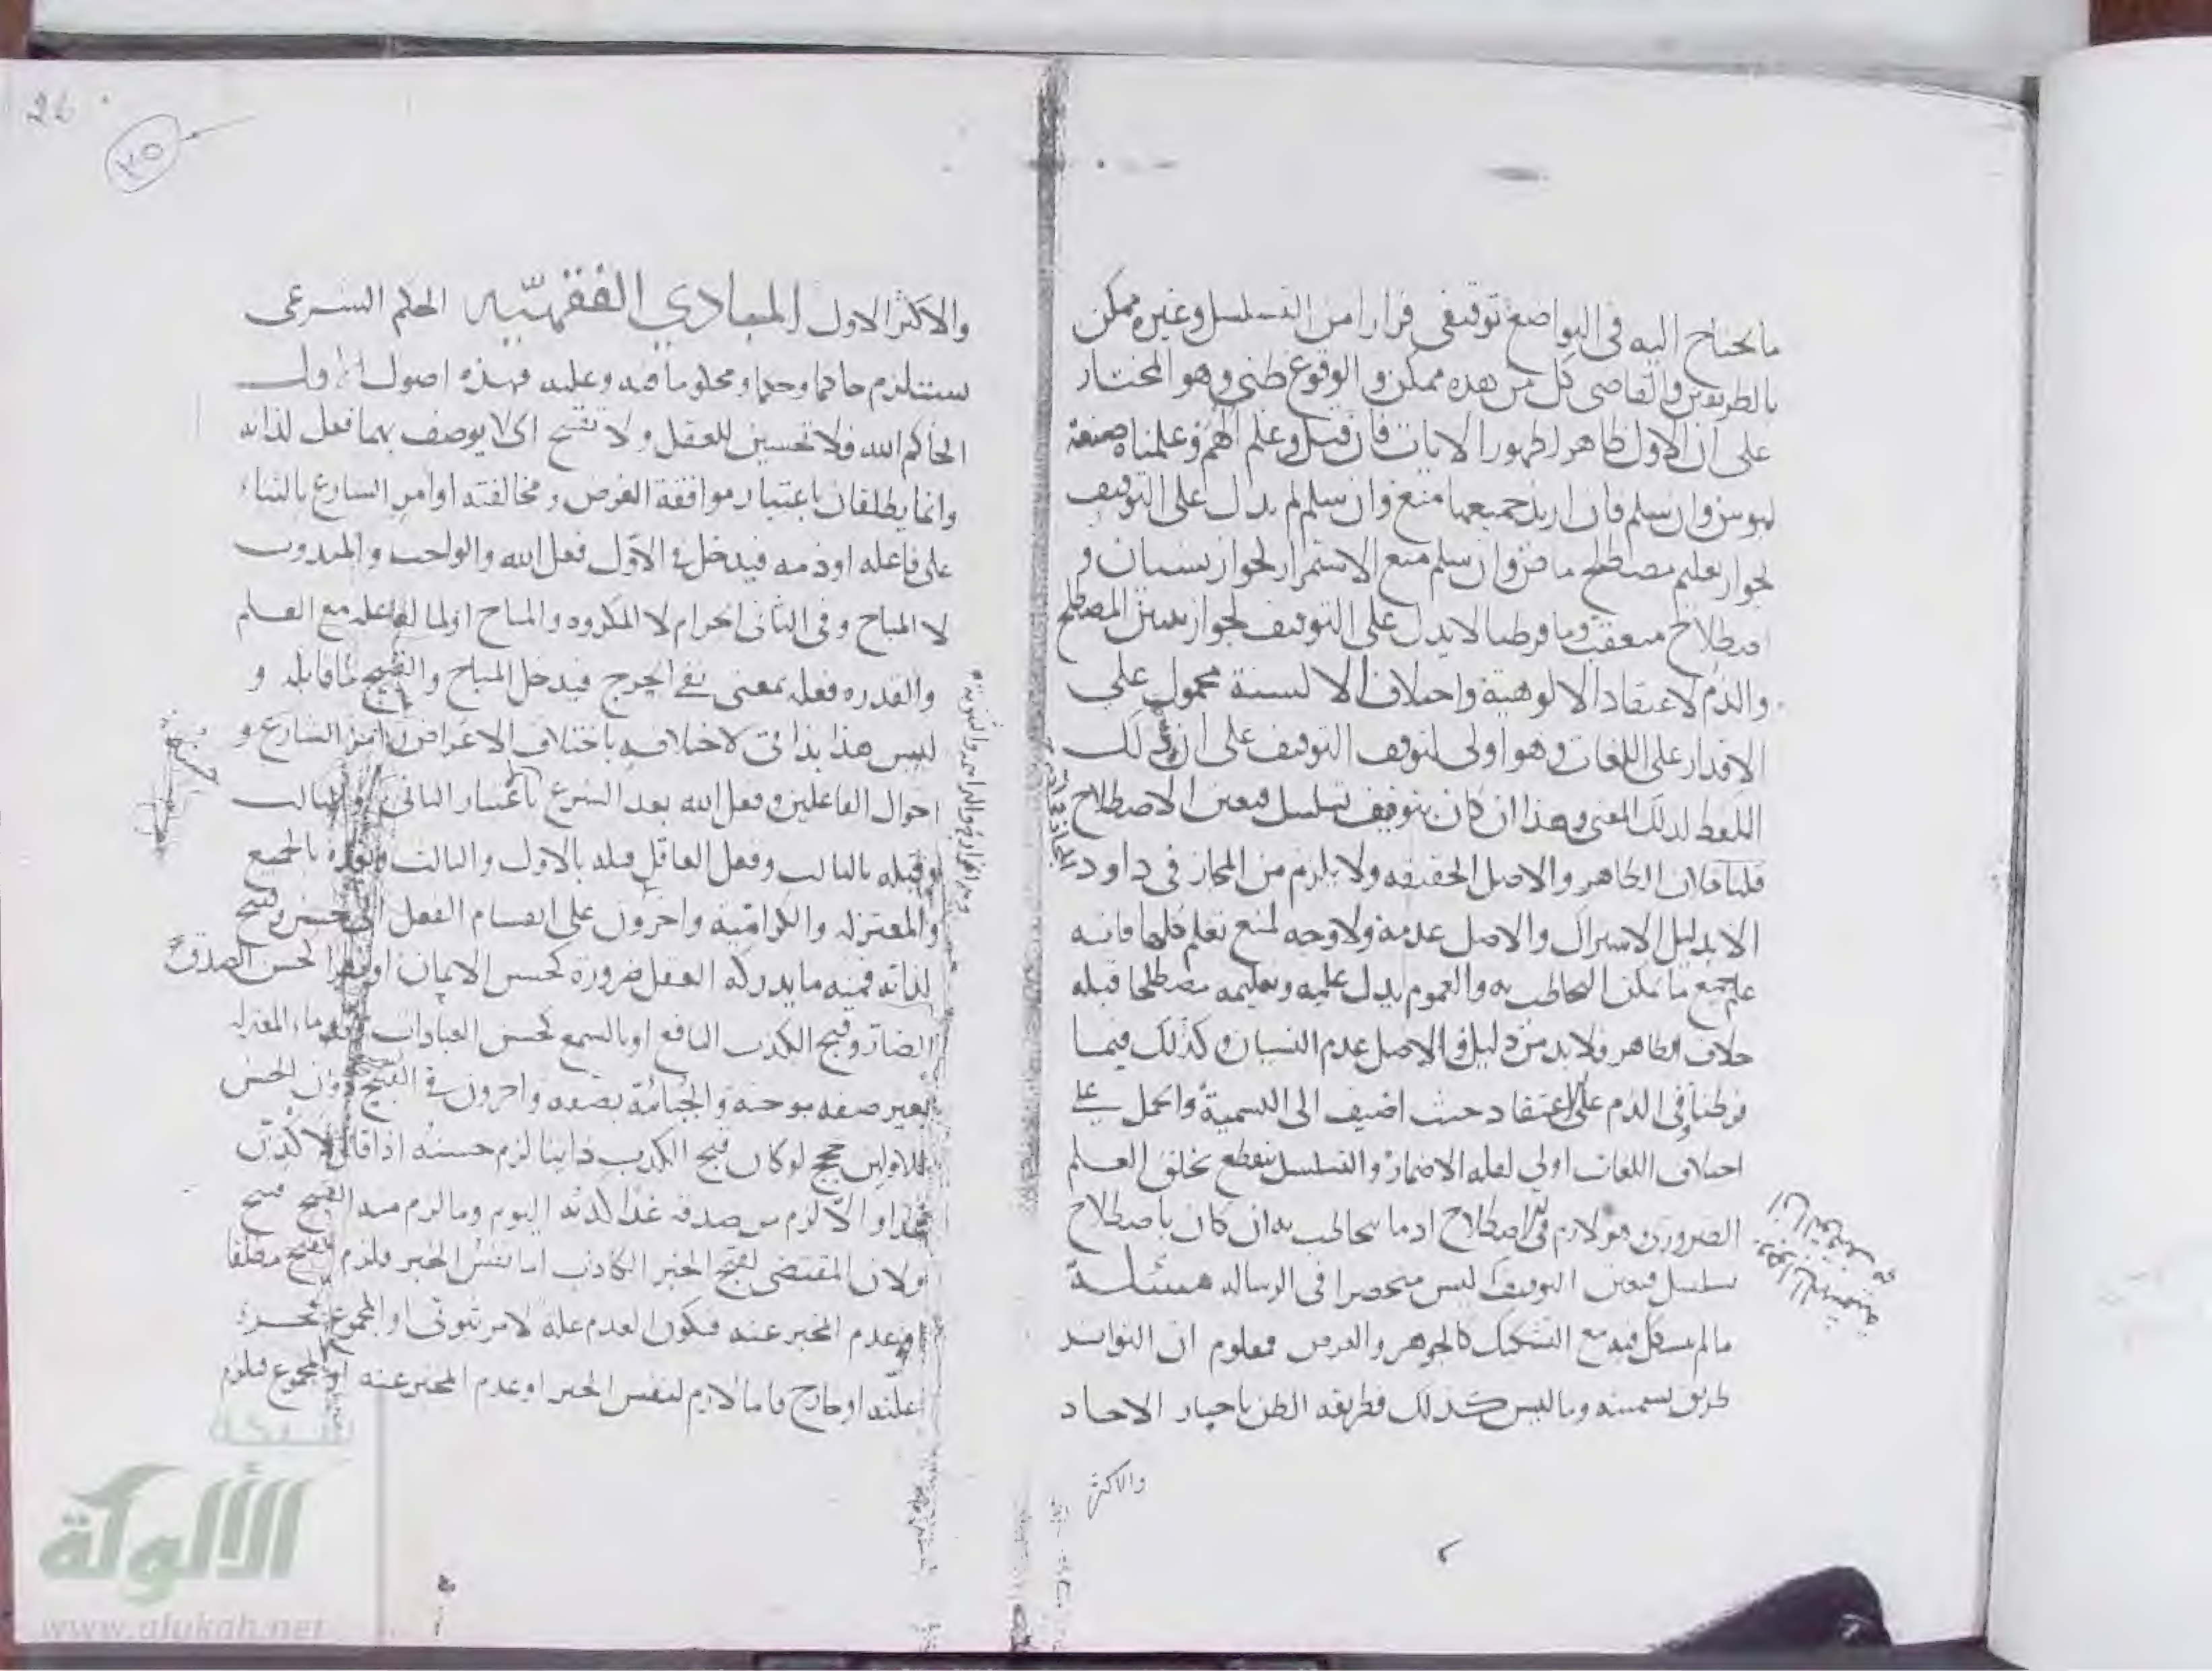 ما يحتاج اليه في التواضع توقيفي فرارا من التسلسل وغيره ممكن
بالطريقين والقاضي كل من هذه ممكن والوقوع ظني وهو المختار
على ان الاول ظاهر لظهور الايات فان قيل وعلم الهم وعلمناه صنعة
لبوس وان سلم فان اريد جميعها منع وان سلم لم يدل على التوقيف
لجواز تعليم مصطلح ماض وان سلم منع الاستمرار لجواز نسيان و
اصطلاح متعقب وما فرطنا لا يدل على التوقيف لجواز تبيين المصطلح
والذم لاعتقاد الالوهية واختلاف الالسنة محمول على
الاقدار على اللغات وهو اولى لتوقف التوقيف على ان ذلك
اللفظ لذلك المعنى وهذا ان كان بتوقيف تسلسل فتعين الاصطلاح
قلنا خلاف الظاهر والاصل الحقيقة ولا يلزم من المجاز في داود
الا بدليل الاشتراك والاصل عدمه ولا وجه لمنع تعلم كلها فانه
علم جميع ما يمكن التخاطب به والعموم يدل عليه وتعليمه مصطلحا قبله
خلاف الظاهر ولا بد من دليل والاصل عدم النسيان وكذلك فيما
فرطنا وفي الذم على الاعتقاد حيث اضيف الى التسمية والحمل على
اختلاف اللغات اولى لقلة الاضمار والتسلسل ينقطع بخلق العلم
الضروري هو لازم في اصطلاح اذ ما يخاطب به ان كان باصطلاح
تسلسل فتعين التوقيف ليس منحصرا في الرسالة مسئلة
ما لم يشكل فيه مع التشكيك كالجوهر والعرض فمعلوم ان التواتر
طريق تسميته وما ليس كذلك فطريقه الظن باخبار الاحاد
والاكثر
26
٢٥
والاكثر الاول المبادي الفقهيّه الحكم الشرعي
يستلزم حاكما وحكما ومحكوما فيه وعليه فهذه اصول الاول
الحاكم الله فلا تحسين للعقل ولا تقبيح اي لا يوصف بهما فعل لذاته
وانما يطلقان باعتبار موافقة الغرض ومخالفته او امر الشارع بالثناء
على فاعله او ذمه فيدخل في الاول فعل الله والواجب والمندوب
لا المباح وفي الثاني الحرام لا المكروه والمباح او لما لفاعله مع العلم
والقدره فعله بمعنى نفي الحرج فيدخل المباح والقبيح ما قابله و
ليس هذا بذاتي لاختلافه باختلاف الاغراض امر الشارع و
احوال الفاعلين وفعل الله بعد الشرع باعتبار الثاني والثالث
وقبله بالثالث وفعل العاقل قبله بالاول والثالث وبعده بالجميع
والمعتزلة والكرامية واخرون على انقسام الفعل الى حسن وقبيح
لذاته فمنه ما يدركه العقل ضرورة كحسن الايمان او نظرا لحسن الصدق
الضار وقبح الكذب النافع او بالسمع كحسن العبادات قدماء المعتزلة
بغير صفه موجبة والجبائية بصفه واخرون في القبيح وان الحسن
للاولين حجج لو كان قبح الكذب ذاتيا لزم حسنه اذا قال لاكذبن
غدا والا لزم من صدقه غدا كذبه اليوم وما لزم منه القبيح قبيح
ولان المقتضي لقبح الخبر الكاذب اما نفس الخبر فلزم القبح مطلقا
او عدم المخبر عنه فيكون العدم علة لامر ثبوتي او المجموع فجزء
علته او خارج فاما لازم لنفس الخبر او عدم المخبر عنه او المجموع فلزم
شبكة
الألوكة
www.alukah.net